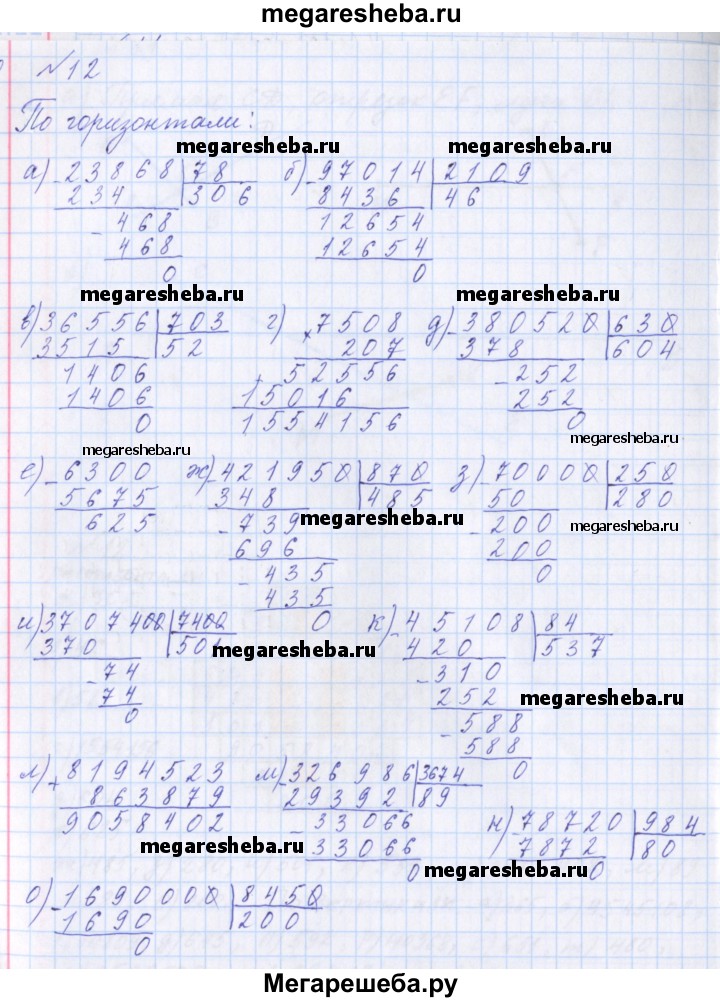 megaresheba.ru
№12
По горизонтали:
megaresheba.ru megaresheba.ru
а) -23868 78 б) -97014 2109
234 306 8436 46
-468 12654
468 12654
0 0
megaresheba.ru megaresheba.ru
в) 36556 703 г) ×7508 д) -380520 630
3515 52 207 378 604
1406 +52556 -252
1406 15016 252
0 1554156 0
megaresheba.ru megaresheba.ru
е) -6300 ж) -421950 870 з) -70000 250
5675 348 485 50 280
625 -739 -200
megaresheba.ru megaresheba.ru
696 200
-435 0
435
0
и) 3707400 7400 к) -45108 84
370 501 420 537
megaresheba.ru
-74 -310
74 252
megaresheba.ru
0 -588
588
0
л) +8194523 м) -326986 3674
863879 29392 89
9058402 -33066 н) -78720 984
33066 7872 80
megaresheba.ru
0 0
megaresheba.ru
о) -1690000 8450
1690 200
0
Мегарешеба.ру